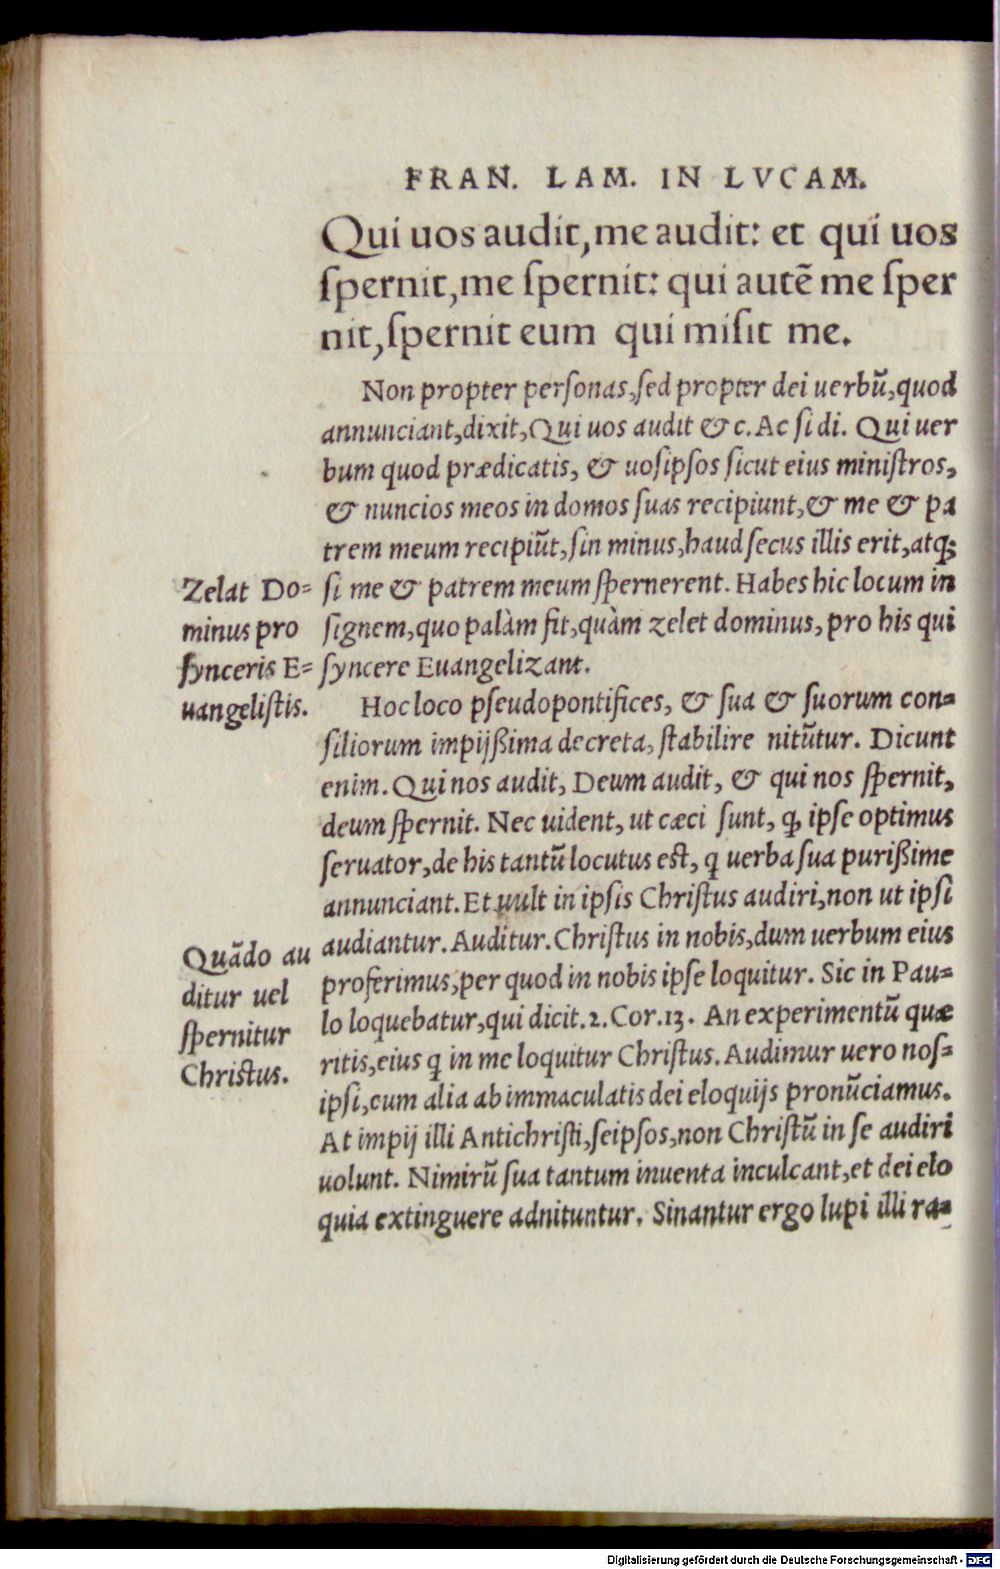 FRAN. LAM. IN LVCAM.
Qui uos audit, me audit: et qui uos
ſpernit, me ſpernit: qui autẽ me ſper
nit, ſpernit eum qui miſit me.
Non propter perſonas, ſed propter dei uerbũ, quod
annunciant, dixit, Qui uos audit & c. Ac ſi di. Qui uer
bum quod prædicatis, & uoſipſos ſicut eius miniſtros,
& nuncios meos in domos ſuas recipiunt, & me & pa
trem meum recipiũt, ſin minus, haud ſecus illis erit, atq;
ſi me & patrem meum ſpernerent. Habes hic locum in
ſignem, quo palàm fit, quàm zelet dominus, pro his qui
ſyncere Euangelizant.
Zelat Do=
minus pro
ſynceris E=
uangeliſtis.
Hoc loco pſeudopontifices, & ſua & ſuorum con=
ſiliorum impijßima decreta, ſtabilire nitũtur. Dicunt
enim. Qui nos audit, Deum audit, & qui nos ſpernit,
deum ſpernit. Nec uident, ut cæci ſunt, ꝙ ipſe optimus
ſeruator, de his tantũ locutus eſt, q̃ uerba ſua purißime
annunciant. Et uult in ipſis Chriſtus audiri, non ut ipſi
audiantur. Auditur. Chriſtus in nobis, dum uerbum eius
proferimus, per quod in nobis ipſe loquitur. Sic in Pau=
lo loquebatur, qui dicit. 2. Cor. 13. An experimentũ quæ
ritis, eius q̃ in me loquitur Chriſtus. Audimur uero noſ=
ipſi, cum alia ab immaculatis dei eloquijs pronũciamus.
At impij illi Antichriſti, ſeipſos, non Chriſtũ in ſe audiri
uolunt. Nimirũ ſua tantum inuenta inculcant, et dei elo
quia extinguere adnituntur. Sinantur ergo lupi illi ra=
Quãdo au
ditur uel
ſpernitur
Chriſtus.
Digitalisierung gefördert durch die Deutsche Forschungsgemeinschaft - DFG